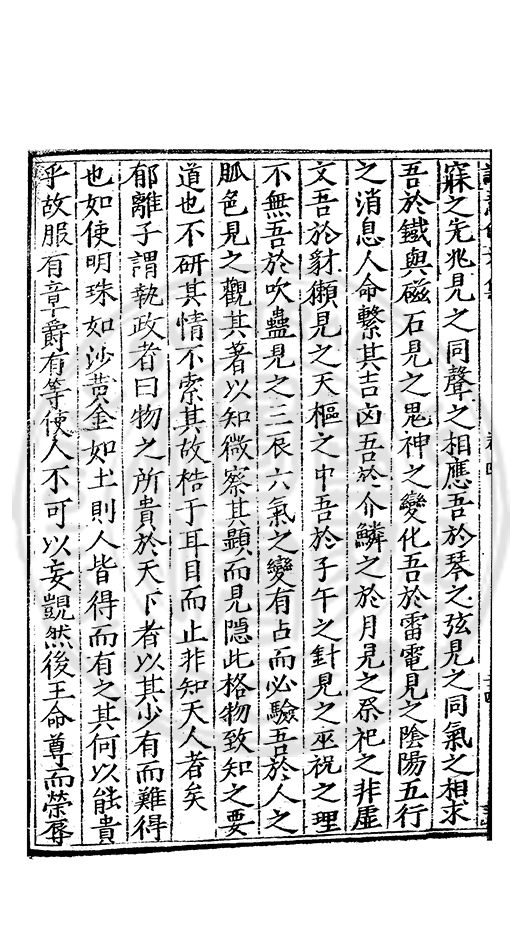 寐之先兆見之同聲之相應吾於琴之弦見之同氣之相求
吾於鐵與磁石見之鬼神之變化吾於雷電見之陰陽五行
之消息人命繫其吉凶吾於介鱗之於月見之祭祀之非虛
文吾於豺獺見之天樞之中吾於子午之針見之巫祝之理
不無吾於吹蠱見之三辰六氣之變有占而必驗吾於人之
脈色見之觀其著以知微察其顯而見隱此格物致知之要
道也不研其情不索其故梏于耳目而止非知天人者矣
郁離子謂執政者曰物之所貴於天下者以其少有而難得
也如使明珠如沙黃金如土則人皆得而有之其何以能貴
乎故服有章爵有等使人不可以妄覬然後王命尊而榮辱